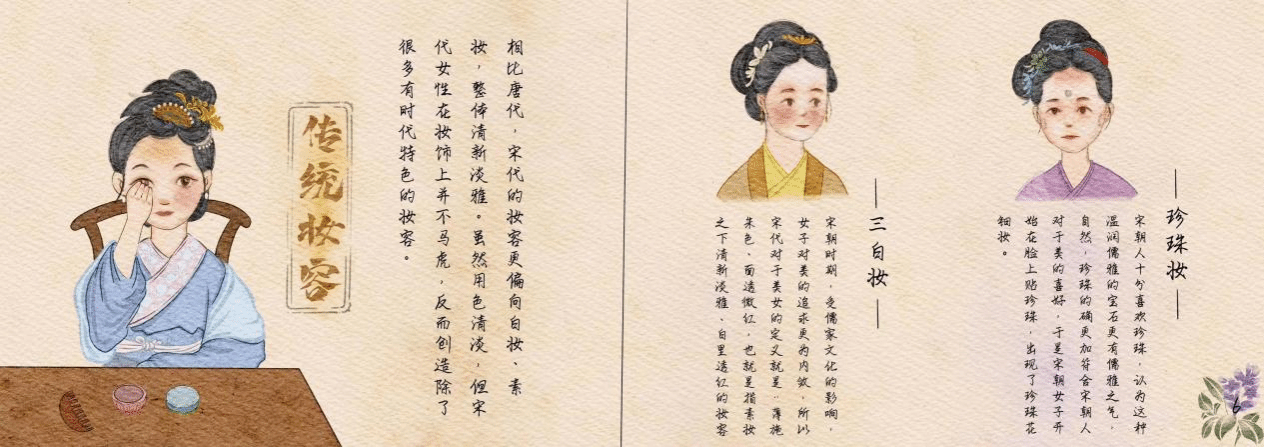 传统妆容
相比唐代，宋代的妆容更偏向白妆、素
妆，整体清新淡雅。虽然用色清淡，但宋
代女性在妆饰上并不马虎，反而创造除了
很多有时代特色的妆容。
三白妆
宋朝时期，受儒家文化的影响，
女子对美的追求更为内敛，所以
宋代对于美女的定义就是：薄施
朱色，面透微红，也就是指素妆
之下清新淡雅、白里透红的妆容
珍珠妆
宋朝人十分喜欢珍珠，认为这种
温润儒雅的宝石更有儒雅之气，
自然，珍珠的确更加符合宋朝人
对于美的喜好，于是宋朝女子开
始在脸上贴珍珠，出现了珍珠花
钿妆。
6